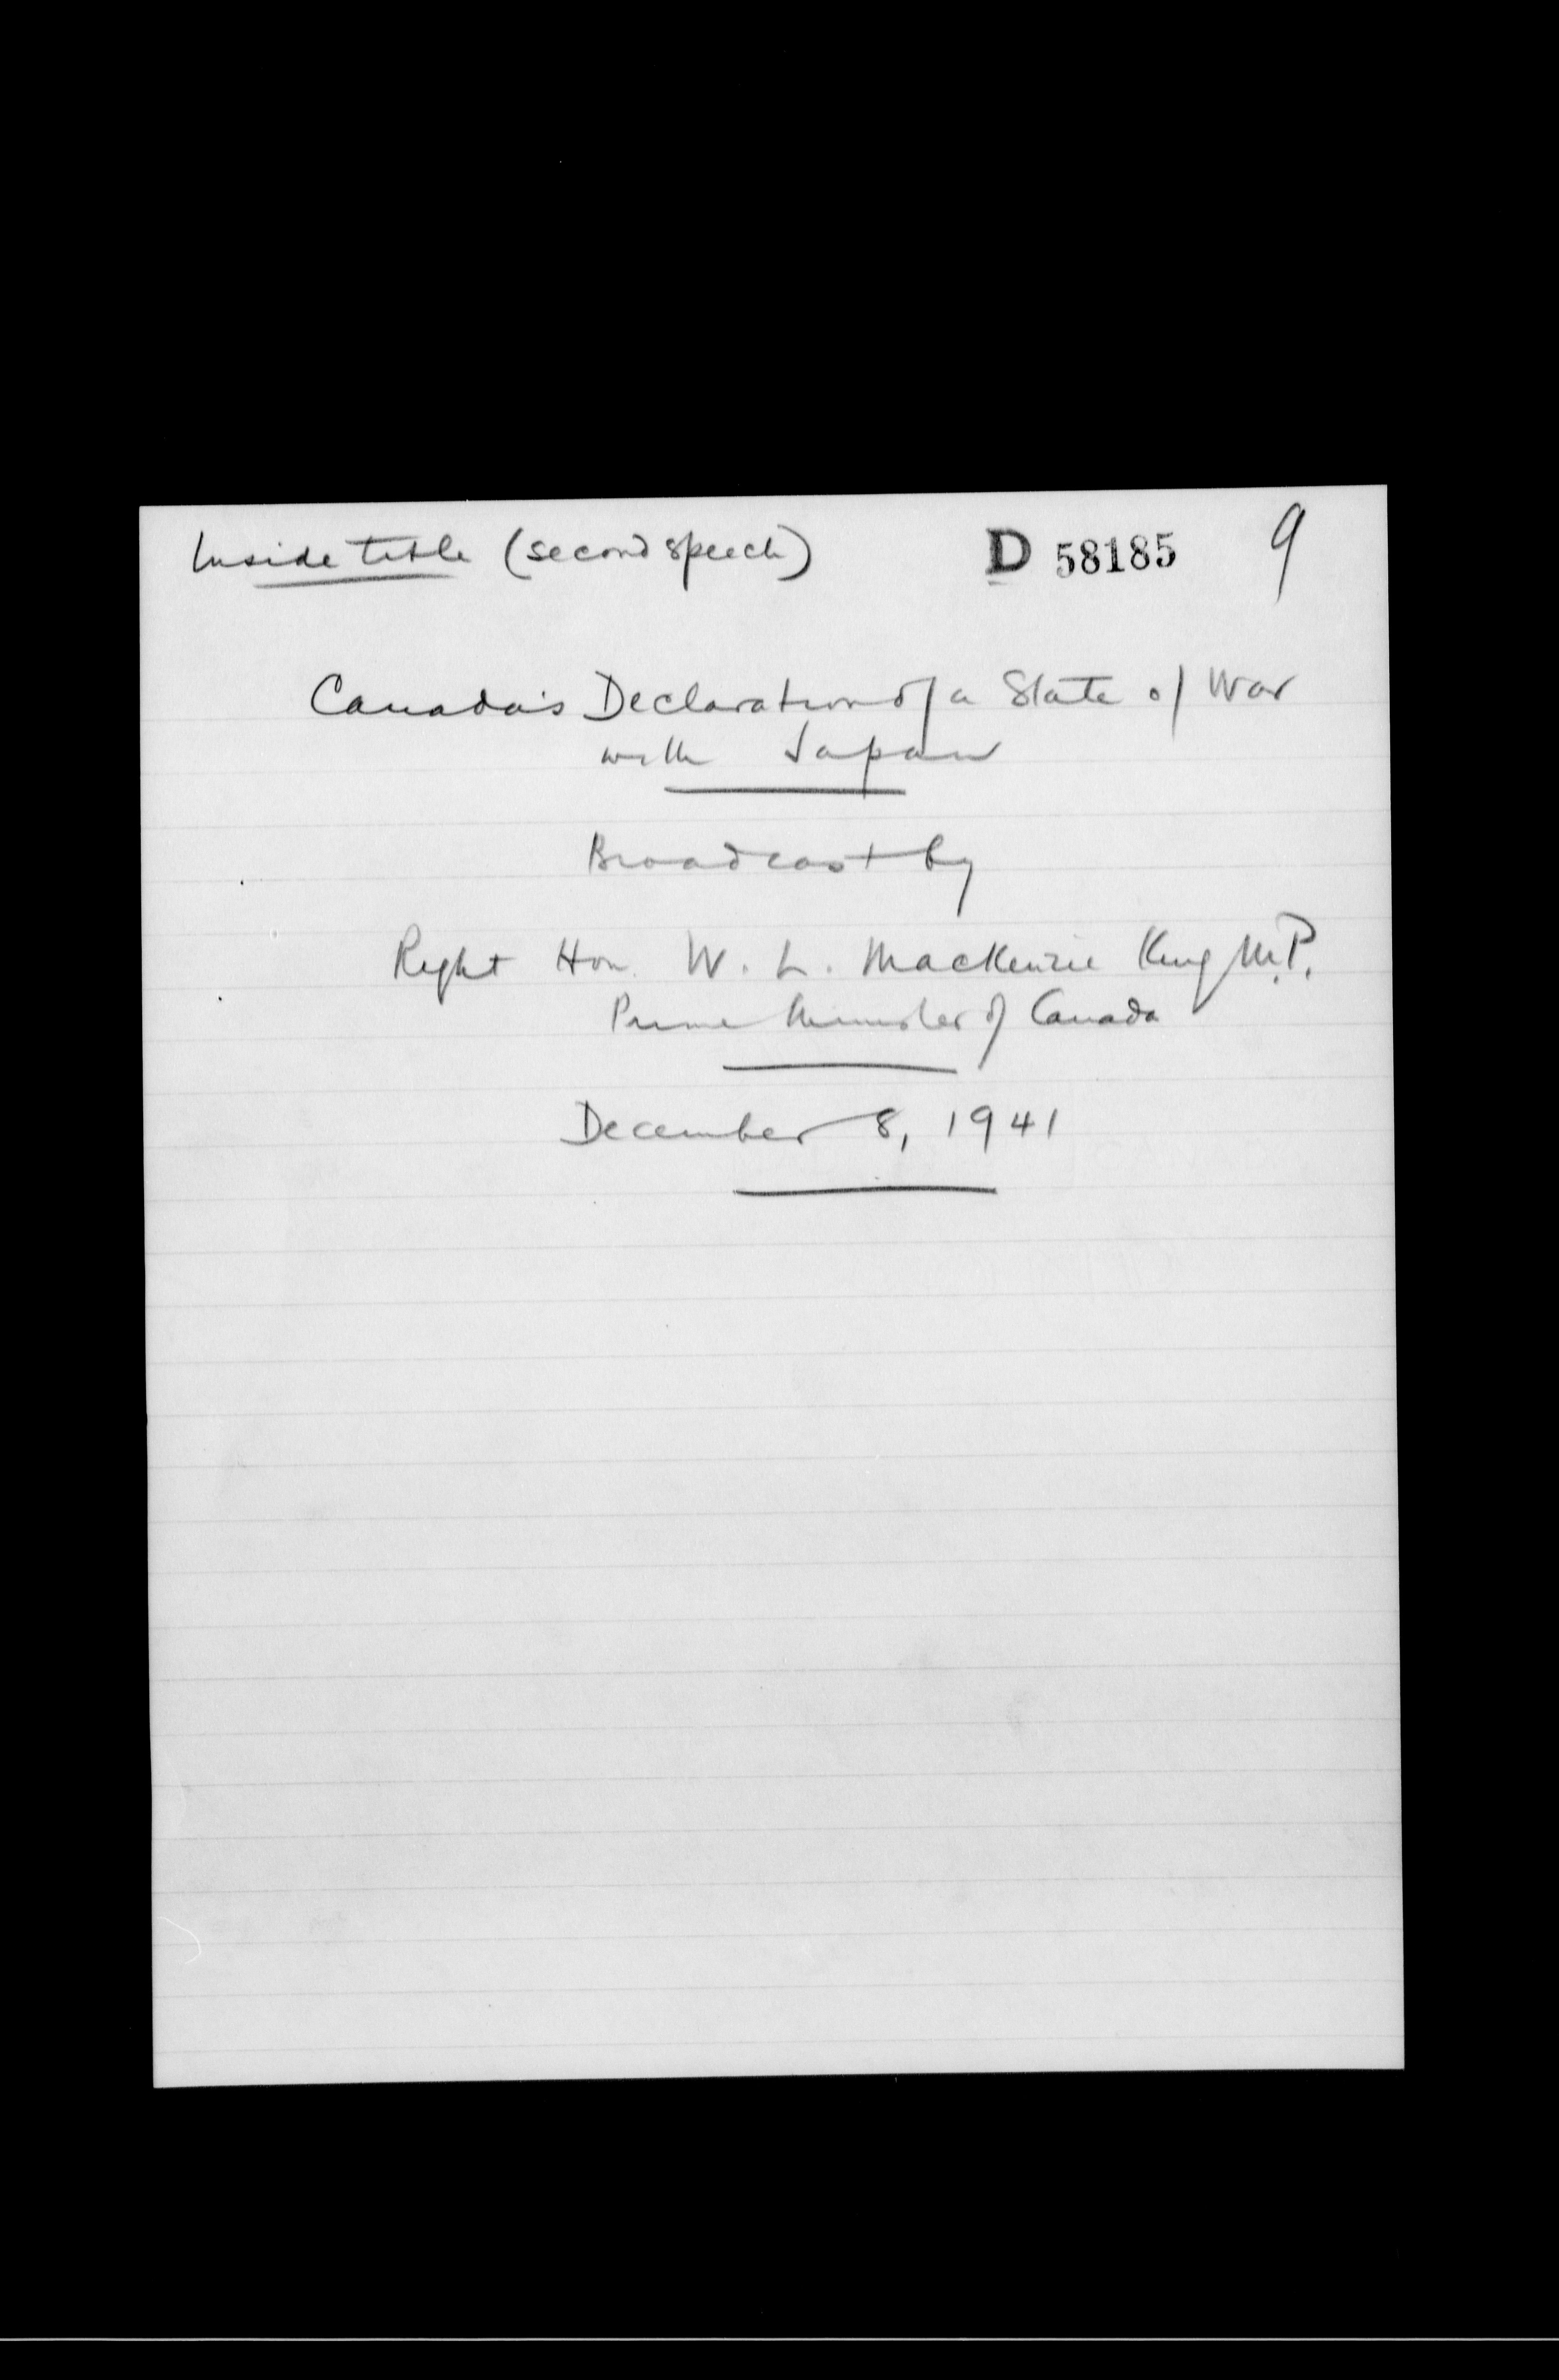 Inside title (second speech) D 58185 9
Canada's Declaration of a State of War
with Japan
Broadcast by
Right Hon. W. L. Mackenzie King M.P.
Prime Minister of Canada
December 8, 1941